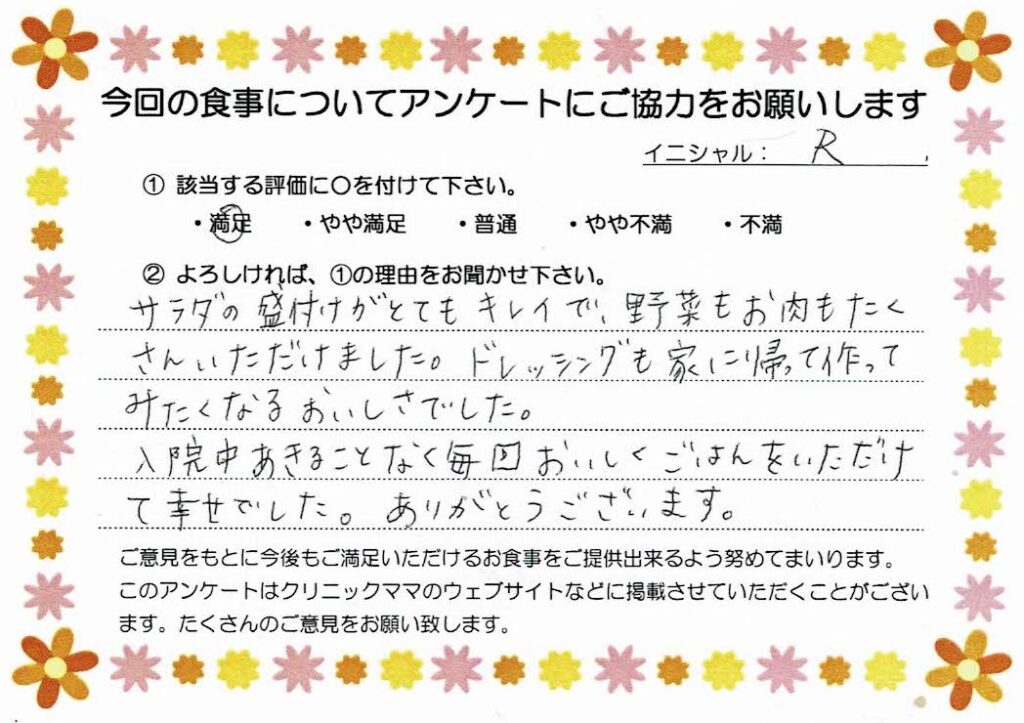 今回の食事についてアンケートにご協力をお願いします
イニシャル： R
① 該当する評価に〇を付けて下さい。
・満足 ・やや満足 ・普通 ・やや不満 ・不満
② よろしければ、①の理由をお聞かせ下さい。
サラダの盛付けがとてもキレイで、野菜もお肉もたく
さんいただけました。ドレッシングも家に帰って作って
みたくなるおいしさでした。
入院中あきることなく毎回おいしくごはんをいただけ
て幸せでした。ありがとうございます。
ご意見をもとに今後もご満足いただけるお食事をご提供出来るよう努めてまいります。
このアンケートはクリニックママのウェブサイトなどに掲載させていただくことがござい
ます。たくさんのご意見をお願い致します。